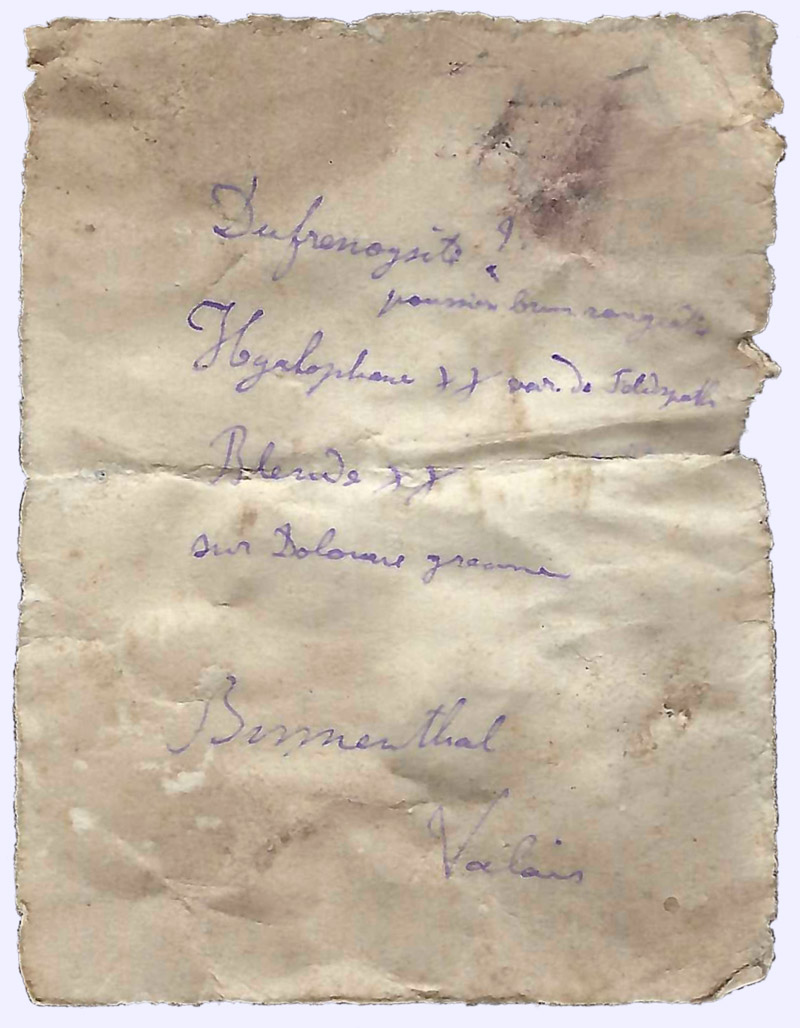 Dufrenoysite ?
poussier brun rougeâtre
Hyalophane xx var. de Feldspath
Blende xx
sur Dolomie grenue
Binnenthal
Valais